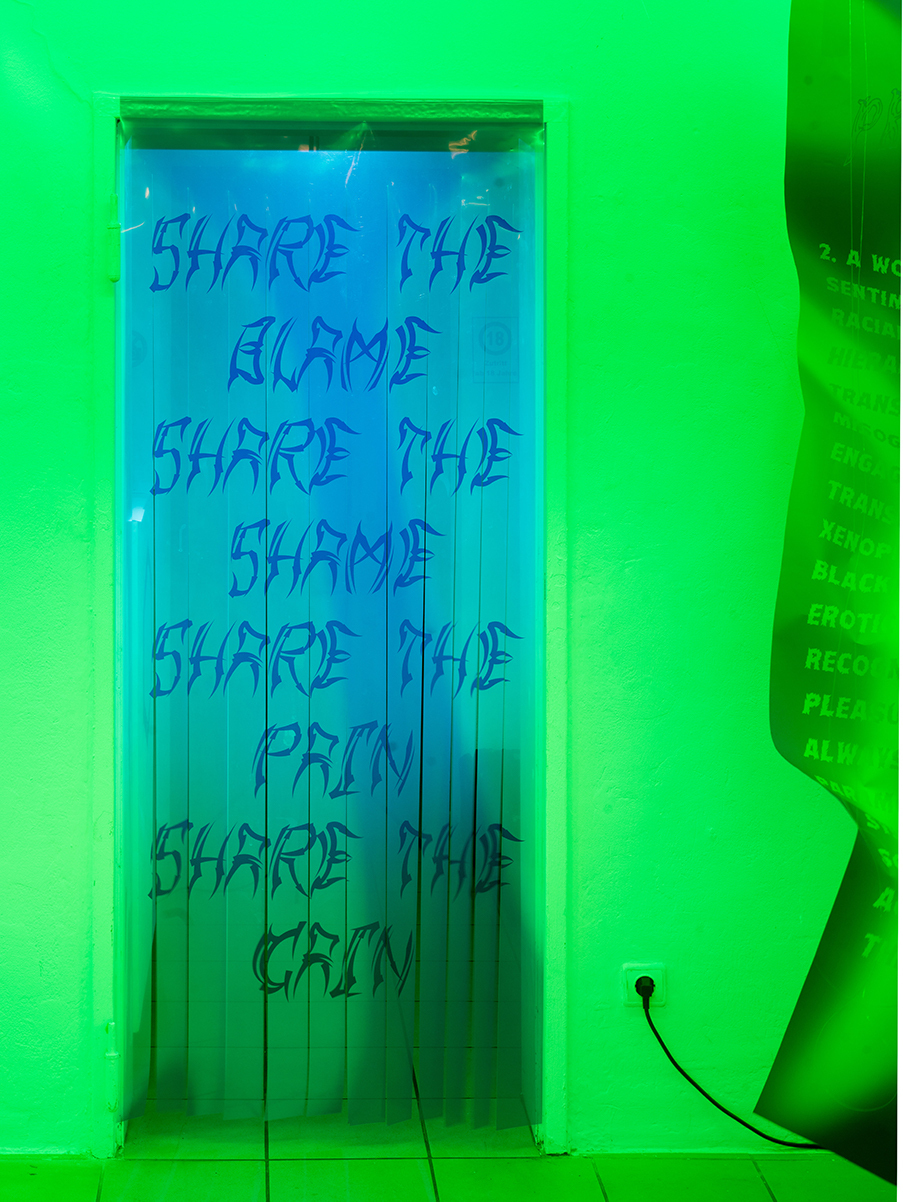 SHARE THE
BLAME
SHARE THE
SHAME
SHARE THE
PAIN
SHARE THE
GAIN
18
2. A WO
SENTIN
RACIA
HIERA
TRANS
MISOG
ENGA
TRANS
XENOP
BLACK
EROTI
RECOG
PLEASU
ALWAYS